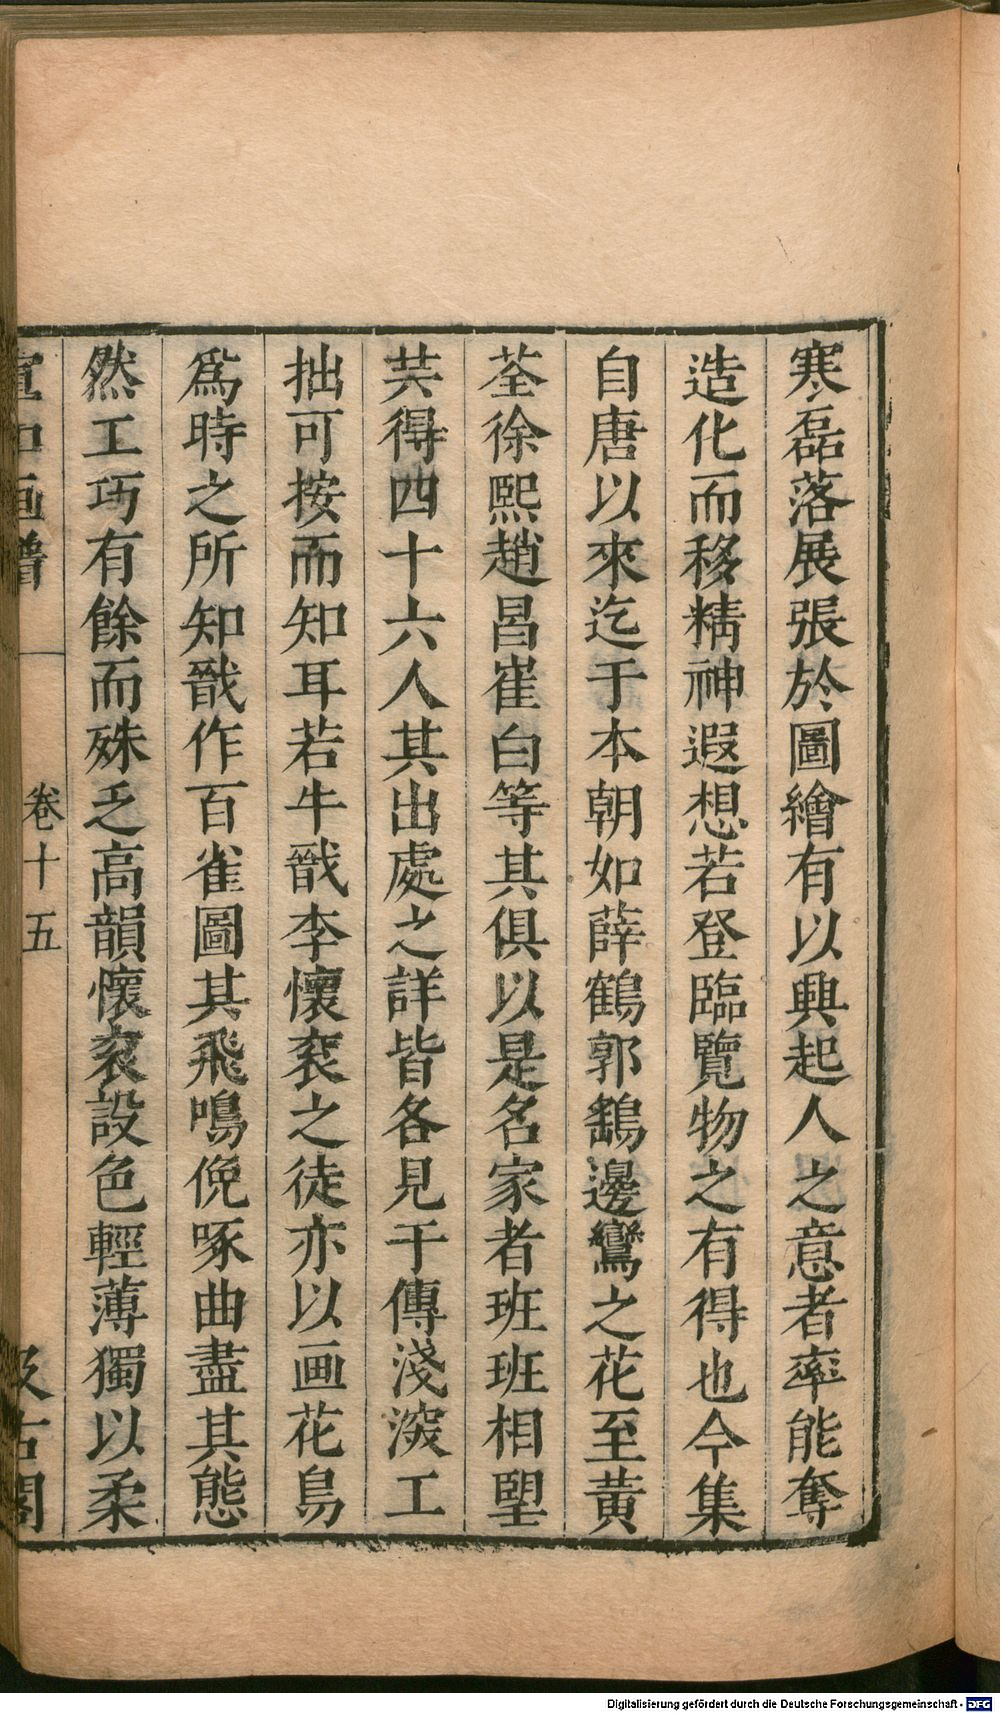 寒磊落展張於圖繪有以興起人之意者率能奪
造化而移精神遐想若登臨覽物之有得也今集
自唐以來迄于本朝如薛鶴郭鷂邊鸞之花至黄
荃徐熙趙昌崔白等其俱以是名家者班班相朢
共得四十六人其出處之詳皆各見于傳淺深工
拙可按而知耳若牛戩李懷衮之徒亦以画花鳥
爲時之所知戩作百雀圖其飛鳴俛啄曲盡其態
然工巧有餘而殊乏高韻懷衮設色輕薄獨以柔
宣和画譜
卷十五
汲古閣
Digitalisierung gefördert durch die Deutsche Forschungsgemeinschaft - DFG